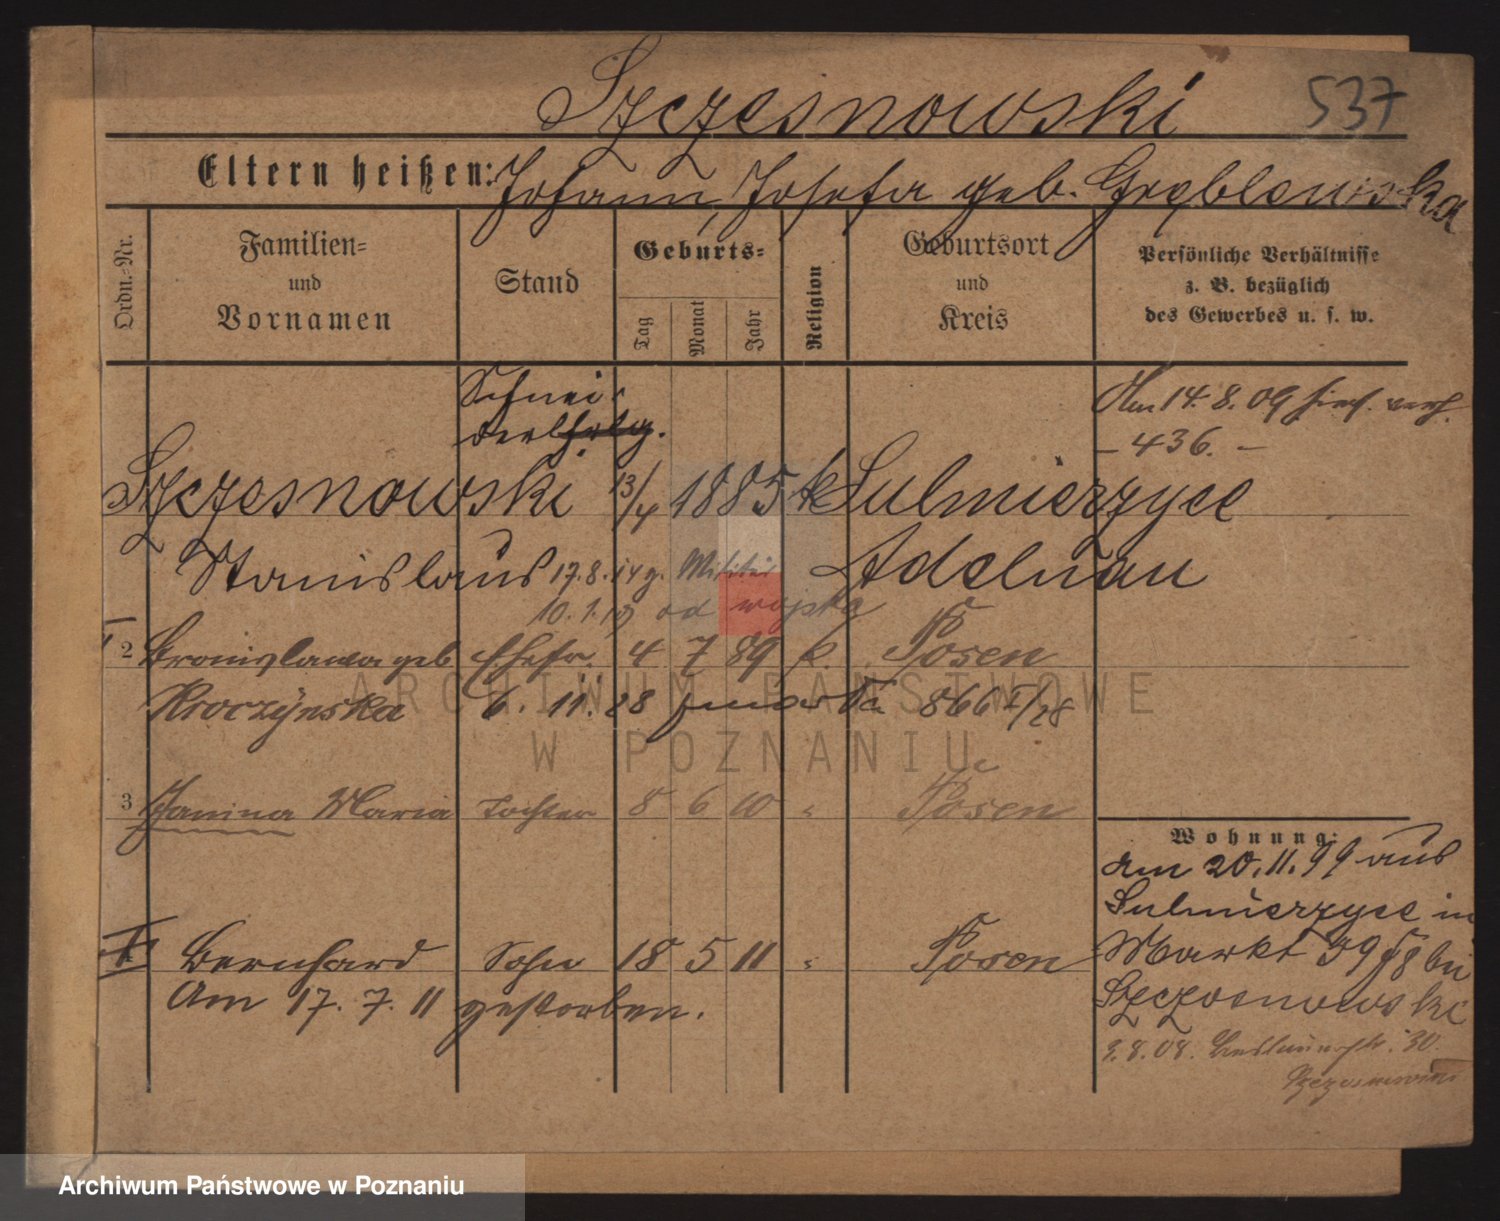 Szczesnowski 537
Eltern heißen: Johann, Josefa geb. Greblewska
Ordn.-Nr.
Familien-
und
Vornamen
Stand
Geburts-
Tag
Monat
Jahr
Religion
Geburtsort
und
Kreis
Persönliche Verhältnisse
z. B. bezüglich
des Gewerbes u. s. w.
Schnei-
Am 14. 8. 09 hier verh.
- 436. -
Szczesnowski 13/4 1885 k Sulmierzyce
Stanislaus 17.8.14 z. Militär Adelnau
od wojska
I
2 Bronislawa geb Ehefr. 4 7 89 k. Posen
Kroczynska 6. 11. 28 zmarła 866 I/28
3 Janina Maria Tochter 8 6 10 " Posen
Bernhard Sohn 18 5 11 " Posen
Am 17. 7. 11 gestorben.
Wohnung:
Am 20. 11. 99 aus
Sulmierzyce in
Markt 39 bei
Szczesnowski
3. 8. 08. 30.
ARCHIWUM PAŃSTWOWE
W POZNANIU
Archiwum Państwowe w Poznaniu